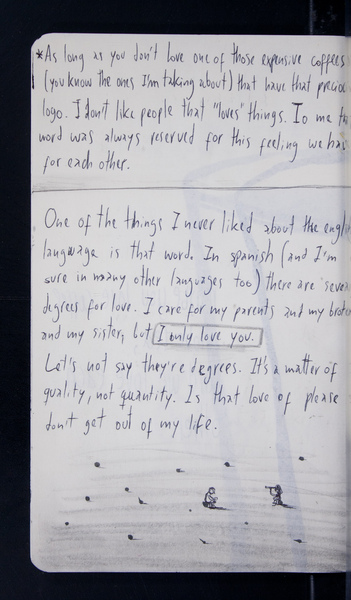 *As long as you don't love one of those expensive coffees
(you know the ones I'm taking about) that have that precio
logo. I don't like people that "loves" things. To me th
word was always reserved for this feeling we ha
for each other.
One of the things I never liked about the englis
language is that word. In spanish (and I'm
sure in many other languages too) there are seve
degrees for love. I care for my parents and my brot
and my sister, but I only love you.
Let's not say they're degrees. It's a matter of
quality, not quantity. Is that love of please
don't get out of my life.